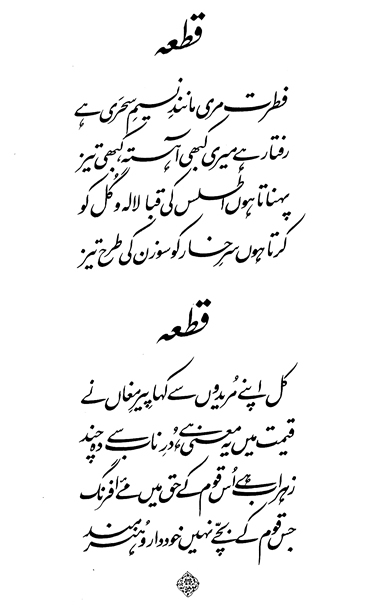 قطعہ
فطرت مری مانندِ نسیمِ سحری ہے
رفتار ہے میری کبھی آہستہ کبھی تیز
پہناتا ہوں اطلس کی قبا لالہ و گل کو
کرتا ہوں سرِ خار کو سوزن کی طرح تیز
قطعہ
کل اپنے مُریدوں سے کہا پیرِ مغاں نے
قیمت میں یہ معنی ہے دُرِ ناب سے دہ چند
زہراب ہے اُس قوم کے حق میں مےَ افرنگ
جس قوم کے بچّے نہیں خوددار و ہُنرمند